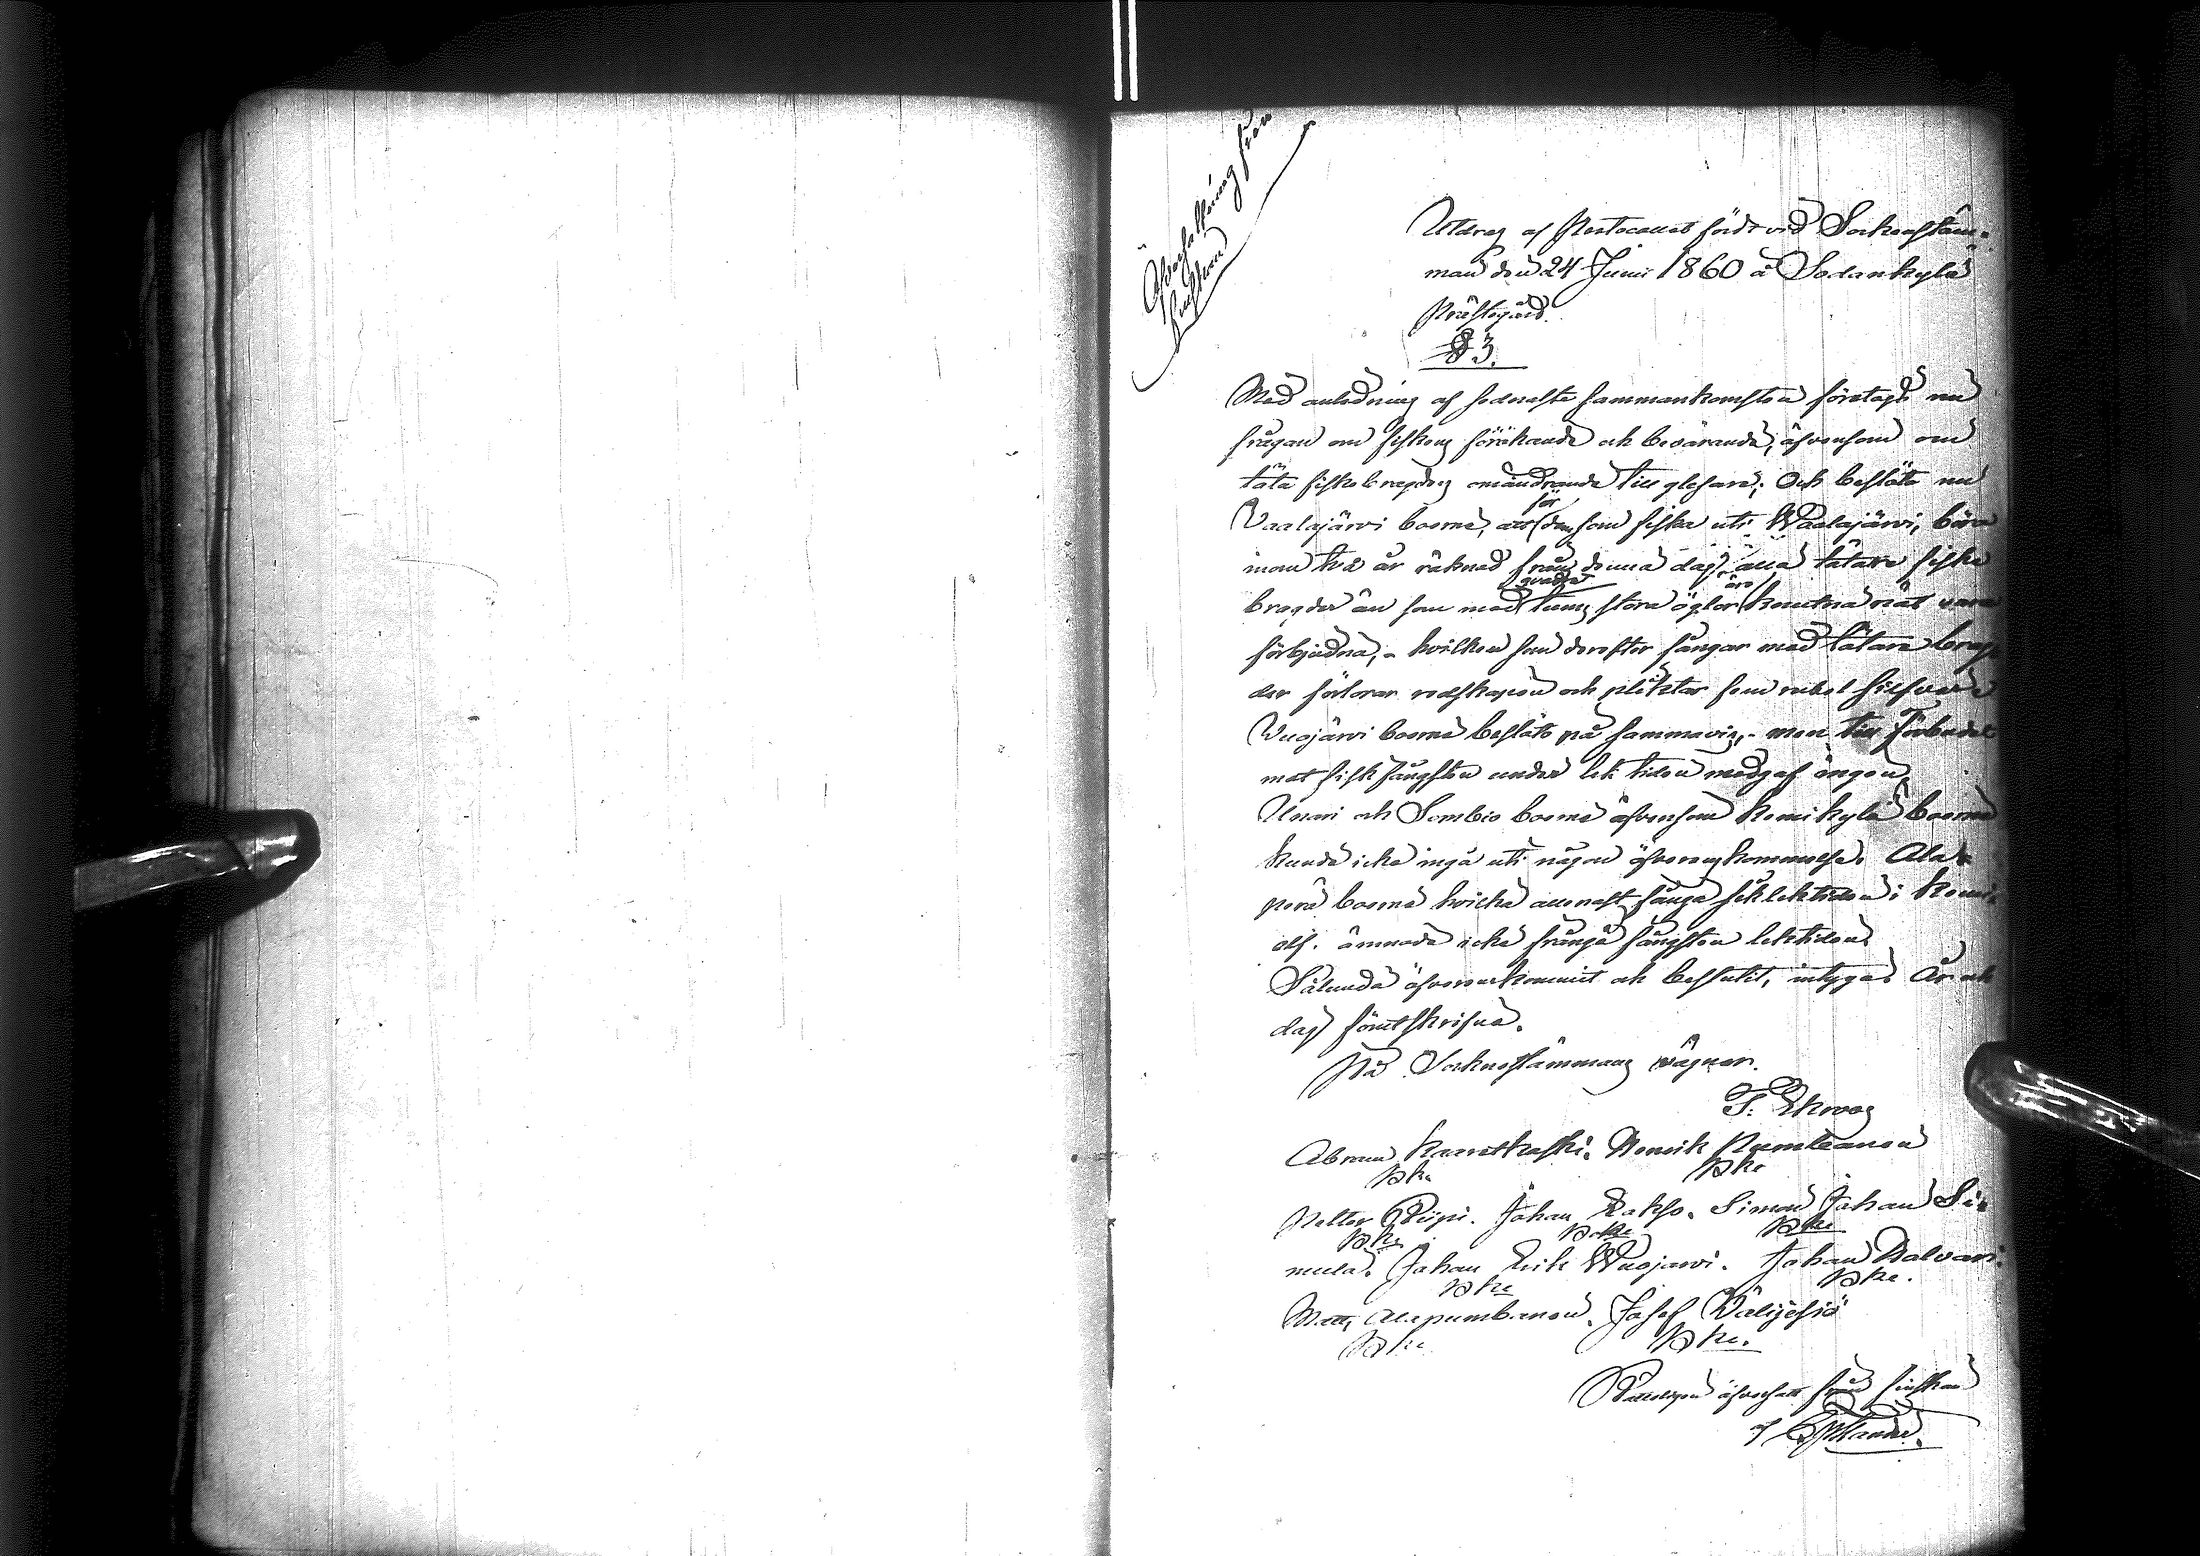 Öfversättning från
finskan
Utdrag af Protocollet fördt vid Sockenstäm-
man den 24 Junii 1860 å Sodankylä
Prästegård.
§ 3.
Med anledning af sednaste sammankomsten företogs nu
frågan om fiskens förökande och bevarande, äfvensom om
täta fiskebragders omändrande till glesare; Och beslöto nu
Vaalajärvi boerne, att för dem som fiska uti Waalajärvi, böra
inom två år räknad från denna dag, alla tätare fiske
bragder än som med tums stora öglor äro knutna nät vara
förbjudna, - hvilken som derefter fångar med tätare brag-
der förlorar redskapen och pliktar fem rubel silfver
Vuojärvi boerne beslöto på sammavis, - men till förbudet
mot fisk fångsten under lek tiden medgaf ingen.
Unari och Sombio boerne äfvensom Kemikylä boerne
kunde icke ingå uti någon öfverenskommelse. Ala-
perä boerne hvilka allenast fånga sik lektiden i Kemi
elf. ämnade icke frångå fångsten lektiden.
Sålunda öfverenskommit och beslutit, intygas. År och
dag förutskrifne.
På Sockenstämmans vägnar.
Abram Kaaretkoski. Henrik
Petter Riipi. Johan Simon Johan Si-
mula. Johan Erik Wuojarvi. Johan Halvari.
Matts Alapumbanen. Josef
Vederligen öfversatt från finskan
af